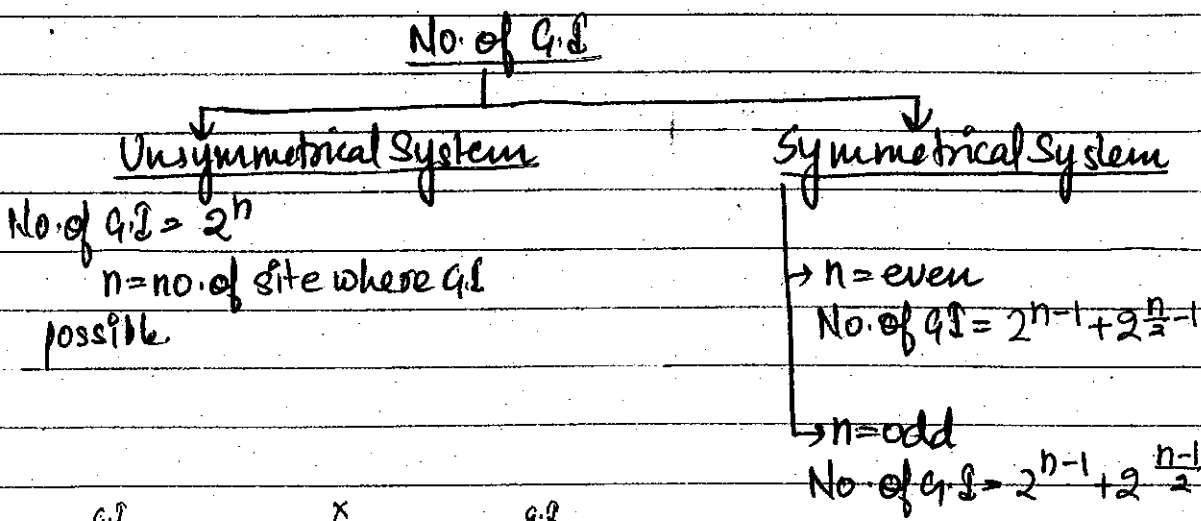 No. of G.I
Unsymmetrical System
No. of G.I = 2^n
n = no. of site where G.I
possible
Symmetrical System
→ n = even
No. of GI = 2^{n-1} + 2^{\frac{n}{2}-1}
→ n = odd
No. of G.I = 2^{n-1} + 2^{\frac{n-1}{2}}
G.I X G.I